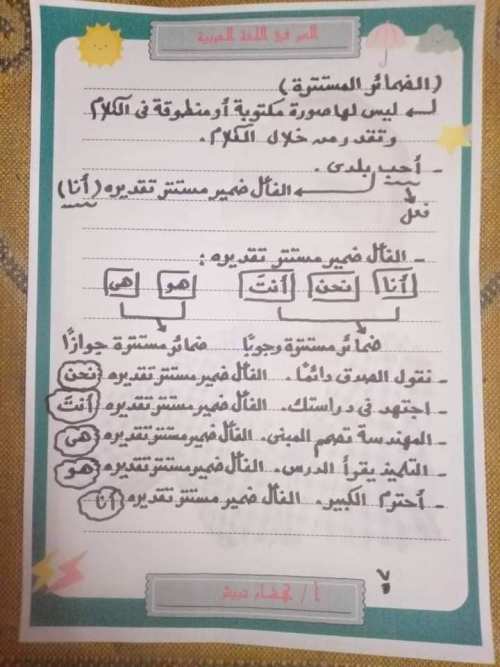 السر في اللغة العربية
(الضمائر المستترة)
ليس لها صورة مكتوبة أو منطوقة في الكلام
وتقدر من خلال الكلام.
- أحب بلدى.
الفاعل ضمير مستتر تقديره (أنا)
فعل
- الفاعل ضمير مستتر تقديره:
أنا نحن أنتَ هو هى
ضمائر مستترة وجوبًا ضمائر مستترة جوازًا
- نقول الصدق دائمًا. الفاعل ضمير مستتر تقديره نحن
- اجتهد في دراستك. الفاعل ضمير مستتر تقديره أنتَ
- المهندسة تصمم المبنى. الفاعل ضمير مستتر تقديره هى
- التلميذ يقرأ الدرس. الفاعل ضمير مستتر تقديره هو
- أحترم الكبير. الفاعل ضمير مستتر تقديره أنا
أ/